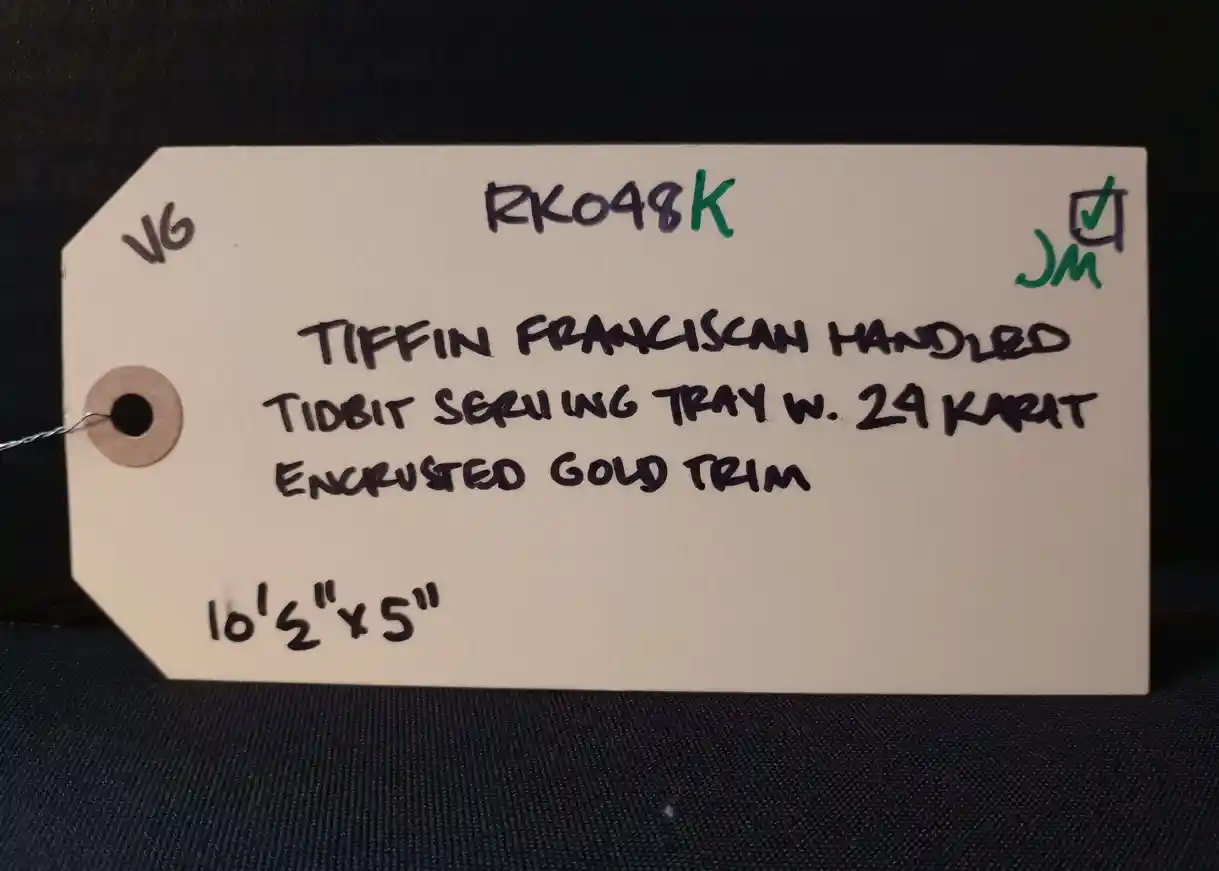 VG
RK048K
✓
JM
TIFFIN FRANCISCAN HANDLED
TIDBIT SERVING TRAY W. 24 KARAT
ENCRUSTED GOLD TRIM
10 1/2" x 5"